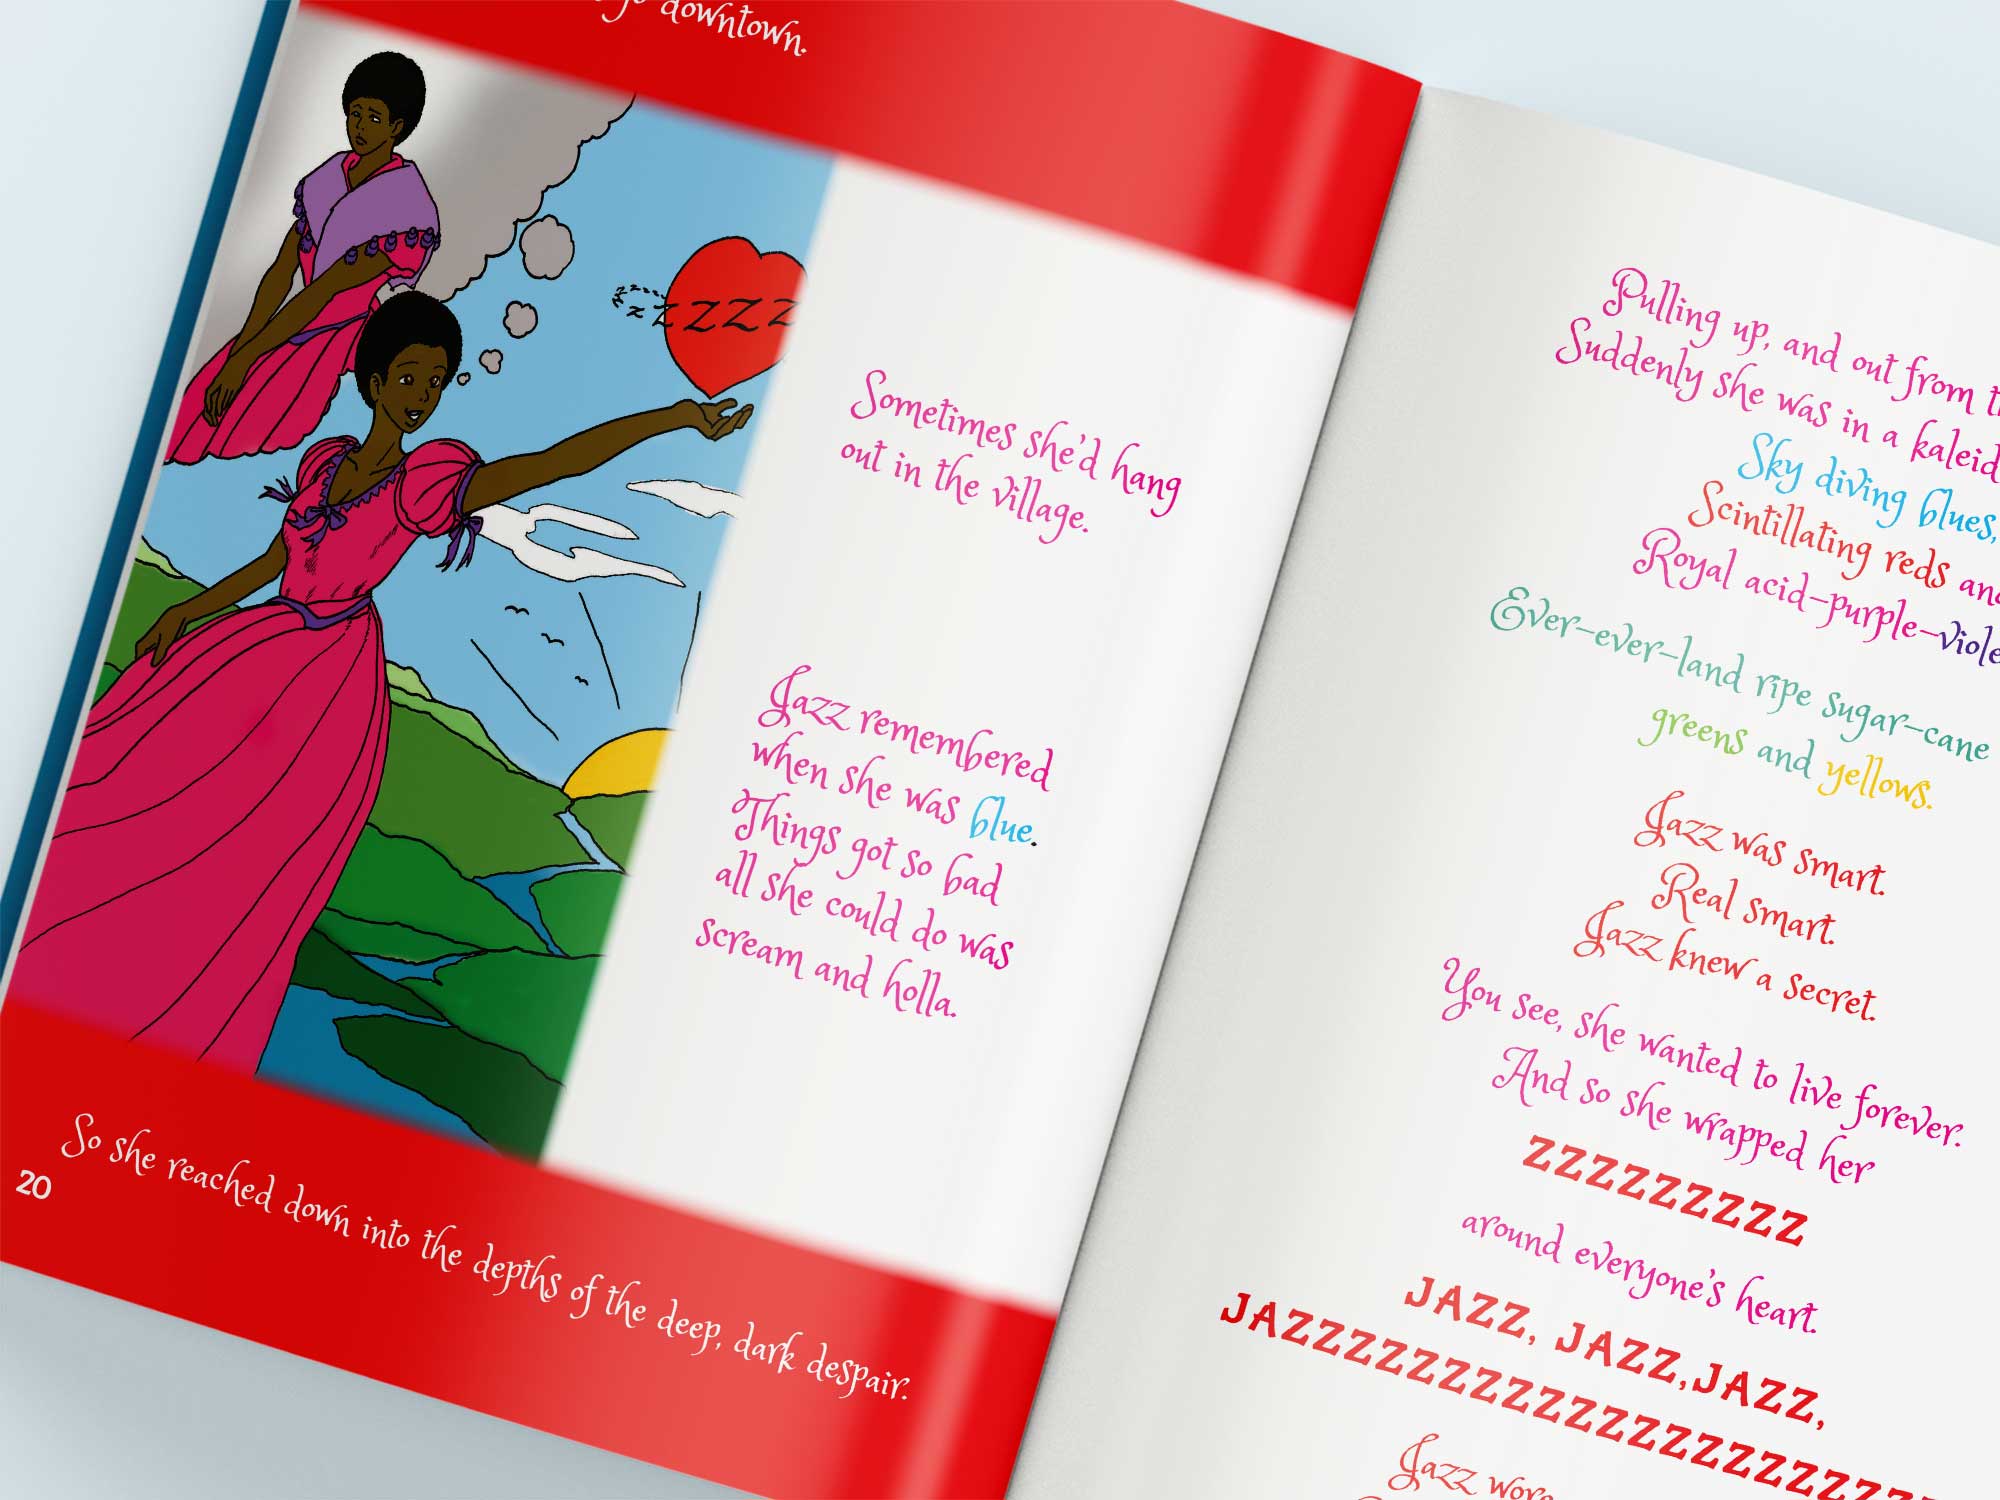 downtown.
zzzzz
Sometimes she'd hang
out in the village.
Jazz remembered
when she was blue.
Things got so bad
all she could do was
scream and holla.
So she reached down into the depths of the deep, dark despair.
20
Pulling up, and out from
Suddenly she was in a
Sky diving blues,
Scintillating reds
Royal acid-purple-
Ever-ever-land ripe sugar-cane
greens and yellows.
Jazz was smart.
Real smart.
Jazz knew a secret.
You see, she wanted to live forever.
And so she wrapped her
ZZZZZZZZZ
around everyone's heart.
JAZZ, JAZZ,JAZZ,
Jazz